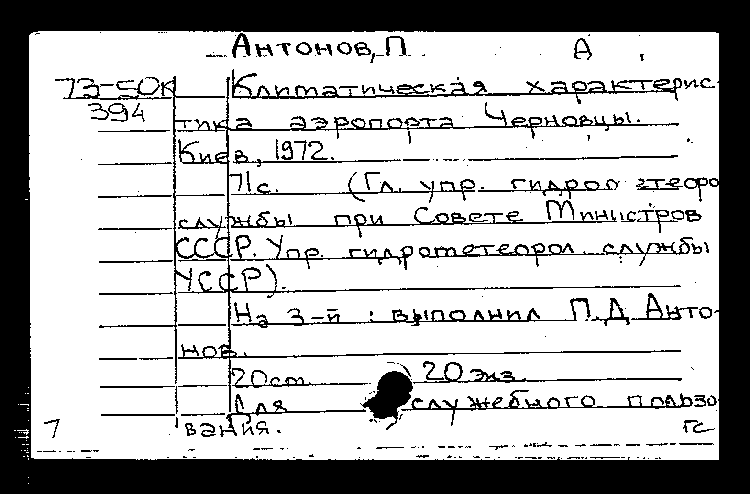 Антонов, П. А
73-50к Климатическая характерис-
394
тика аэропорта Черновцы.
Киев, 1972.
71с. (Гл. упр. гидрол
службы при Совете Министров
СССР. Упр. гидрометеорол. службы
УССР).
На 3-й: выполнил П.Д. Анто-
нов.
20см 20 экз.
Для служебного пользо
вания.
7 гс